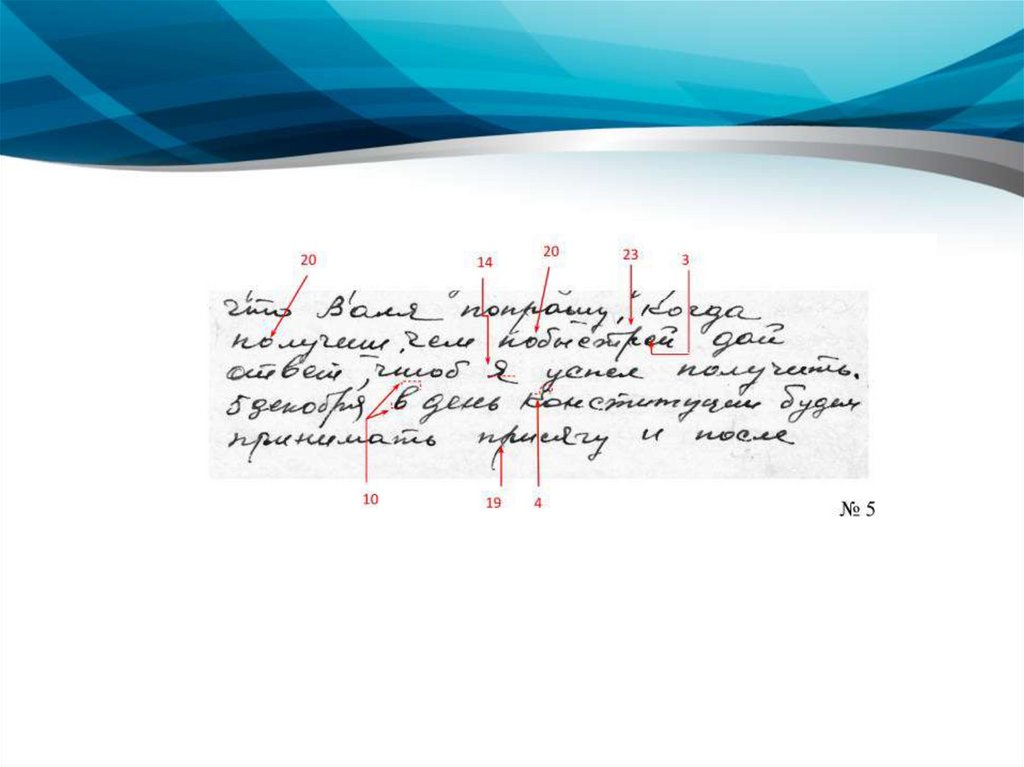 20 14 20 23 3
что Валя "попрашу," Когда
получиш, чем побыстрей дай
ответ, чтоб я успел получить.
5 декобря, в день конституции будем
принимать присягу и после
10 19 4
№ 5